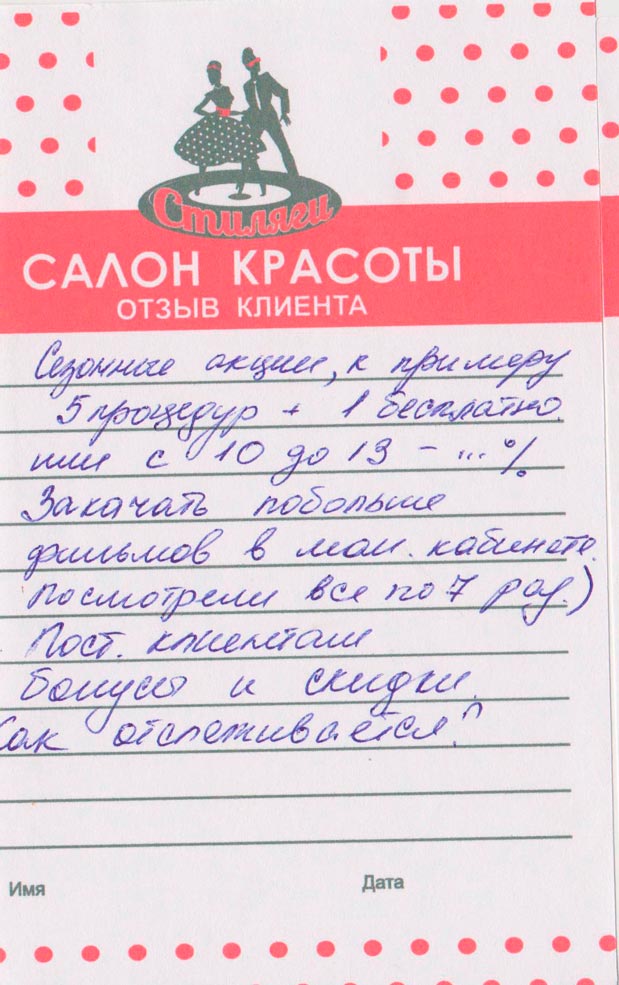 Стиляги
САЛОН КРАСОТЫ
ОТЗЫВ КЛИЕНТА
Сезонные акции, к примеру
5 процедур + 1 бесплатно.
или с 10 до 13 - ...%
Закачать побольше
фильмов в ман. кабинете.
Посмотрели все по 7 раз.)
Пост. клиентам
бонусы и скидки.
Как отслеживается?
Имя
Дата